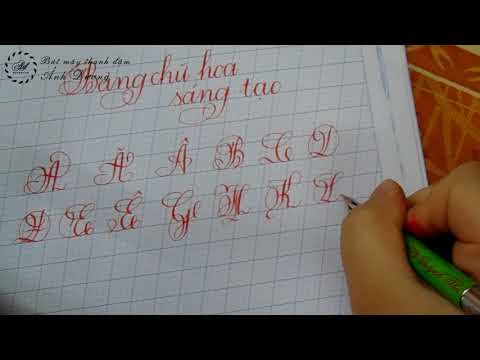 Bút máy thanh đậm
Ánh Dương
Bảng chữ hoa
sáng tạo
A Ă Â B C D
Đ E Ê G H K L